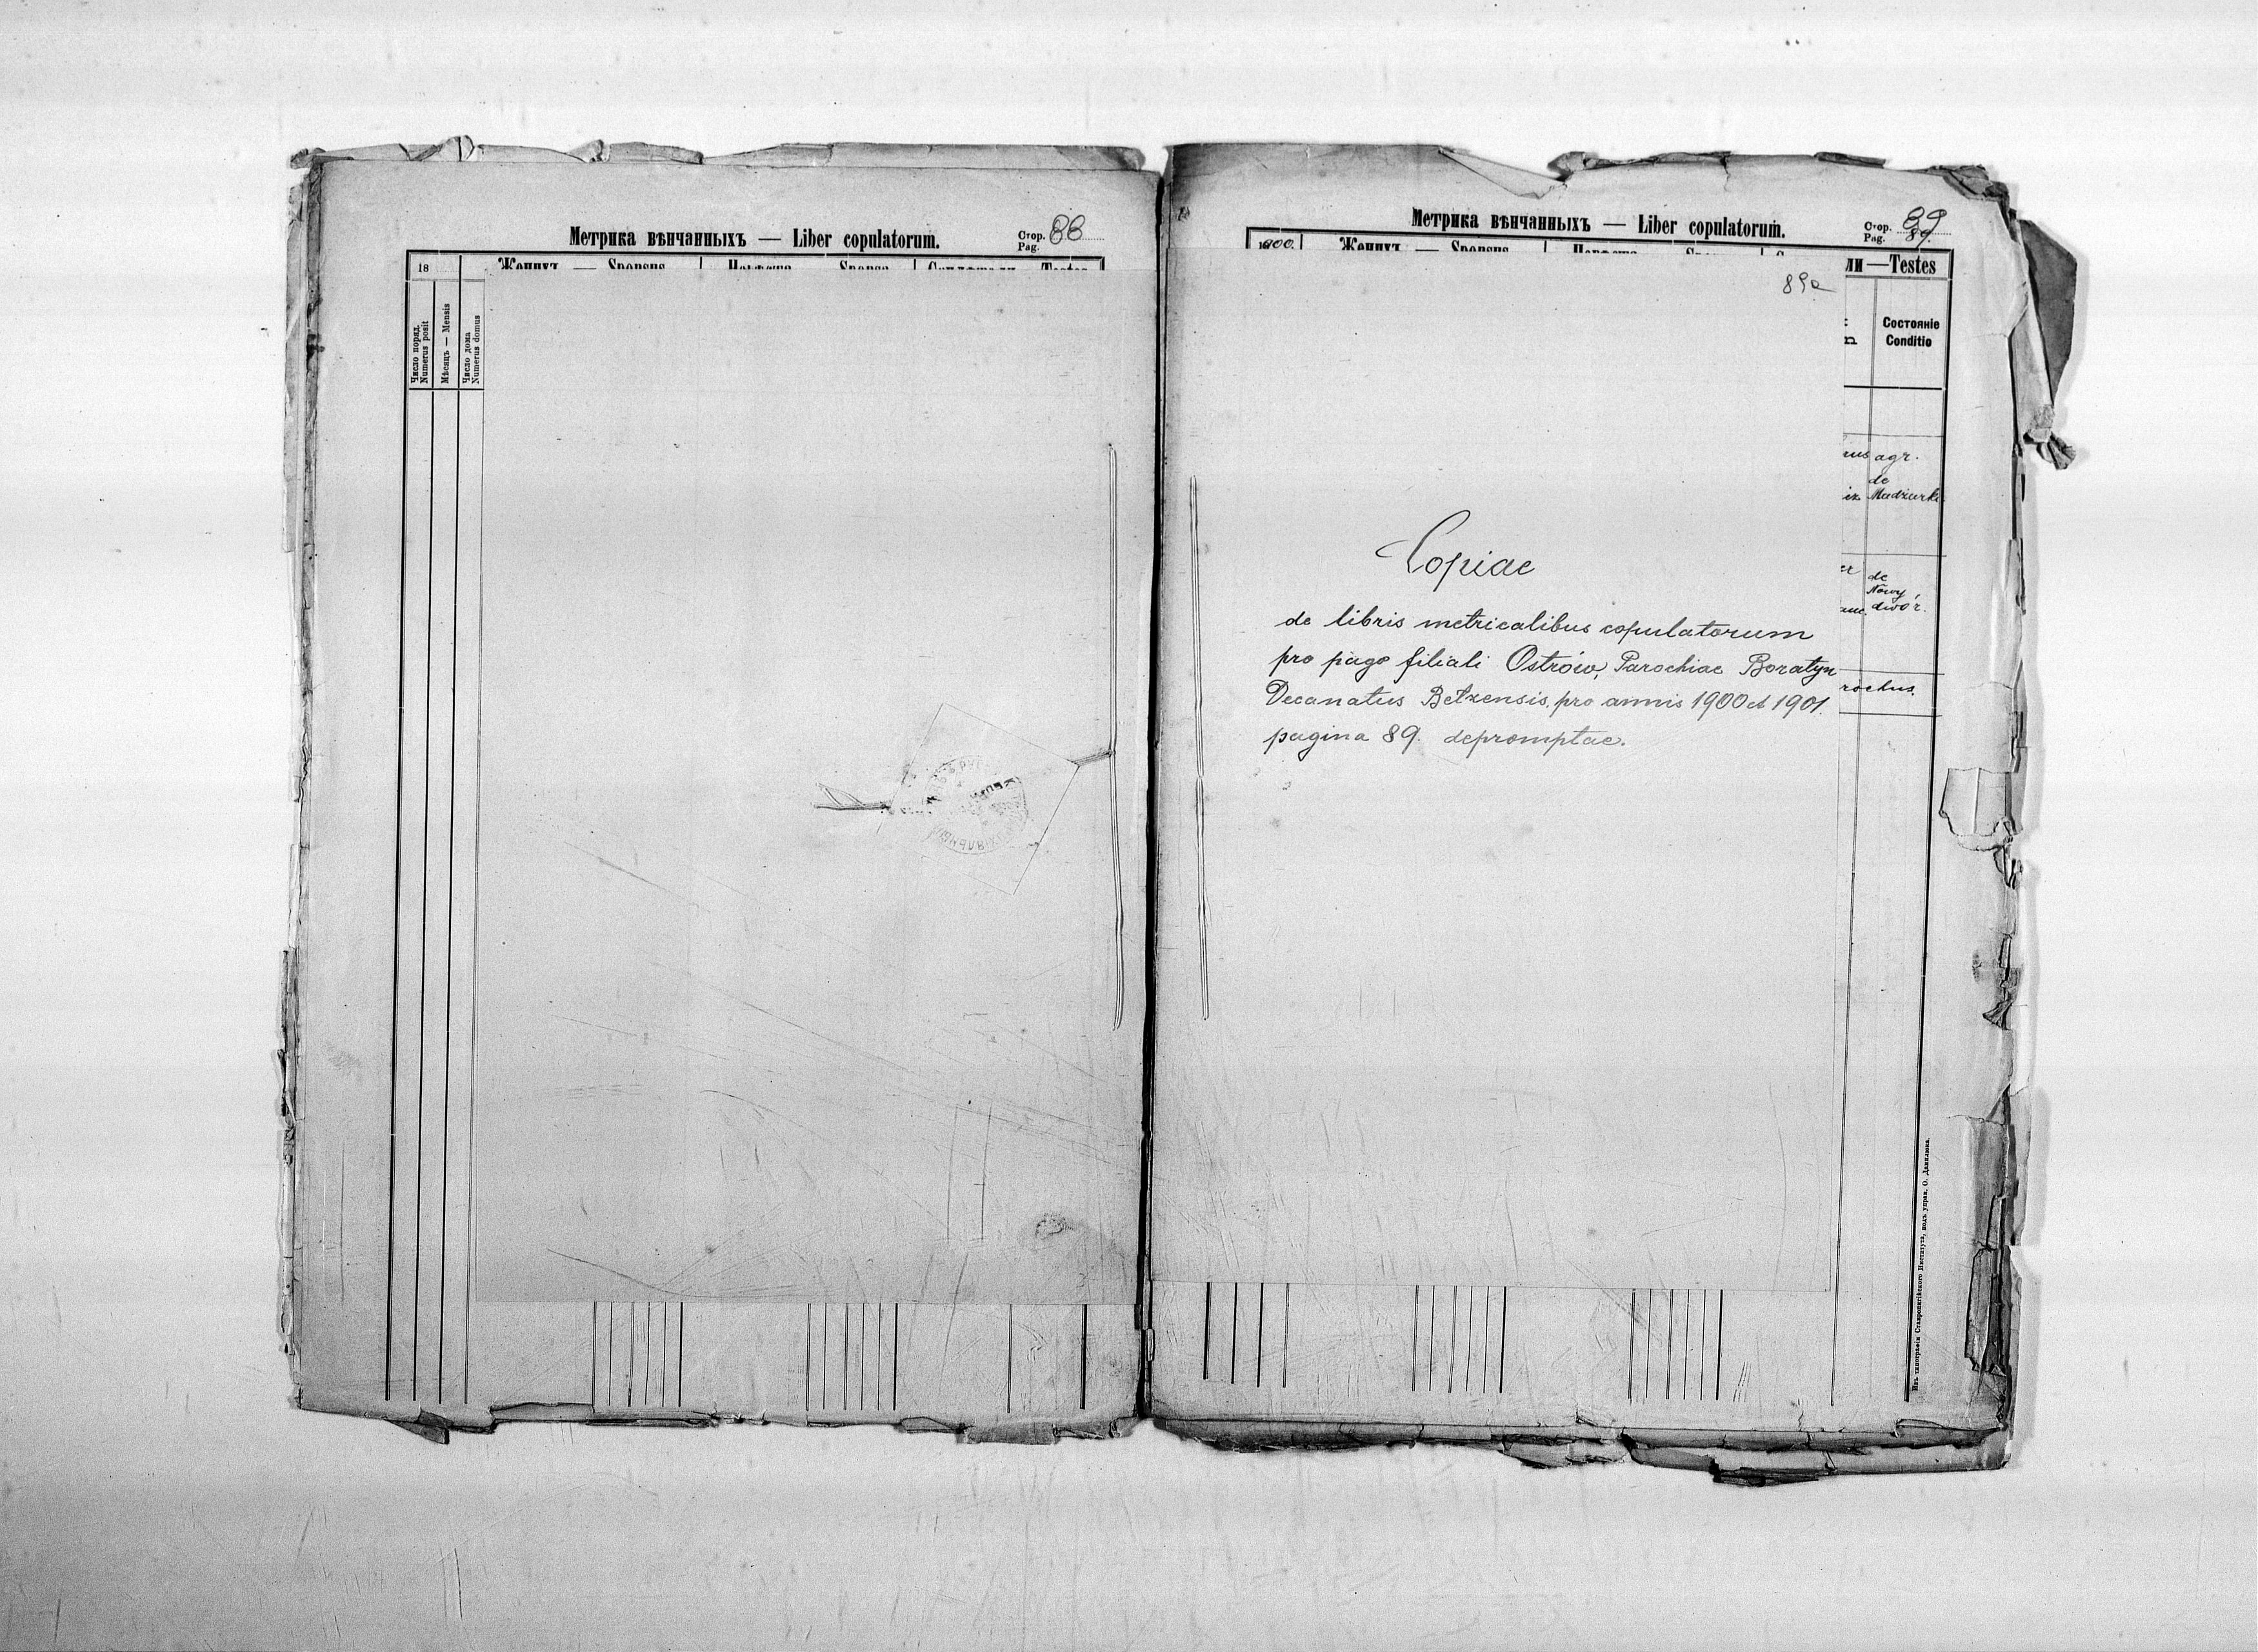 Метрика вѣнчанныхъ — Liber copulatorum.
Стор. 88
Pag.
18
Женихъ — Sponsus
Sponsa
Testes
Число поряд.
Numerus posit
Мѣсяцъ — Mensis
Число дома
Numerus domus
Метрика вѣнчанныхъ — Liber copulatorum.
Стор. 89
Pag. 89.
1900.
Женихъ — Sponsus
ли — Testes
89a
Состояніе
Conditio
agr.
de
Madziarki
de
Nowy
dwór.
rochus.
Copiae
de libris metricalibus copulatorum
pro pago filiali Ostrów, Parochiae Boratyn
Decanatus Betzensis, pro annis 1900 et 1901.
pagina 89. depromptae.
Изъ типографіи Ставропигійского Института, подъ управ. О. Данилюка.